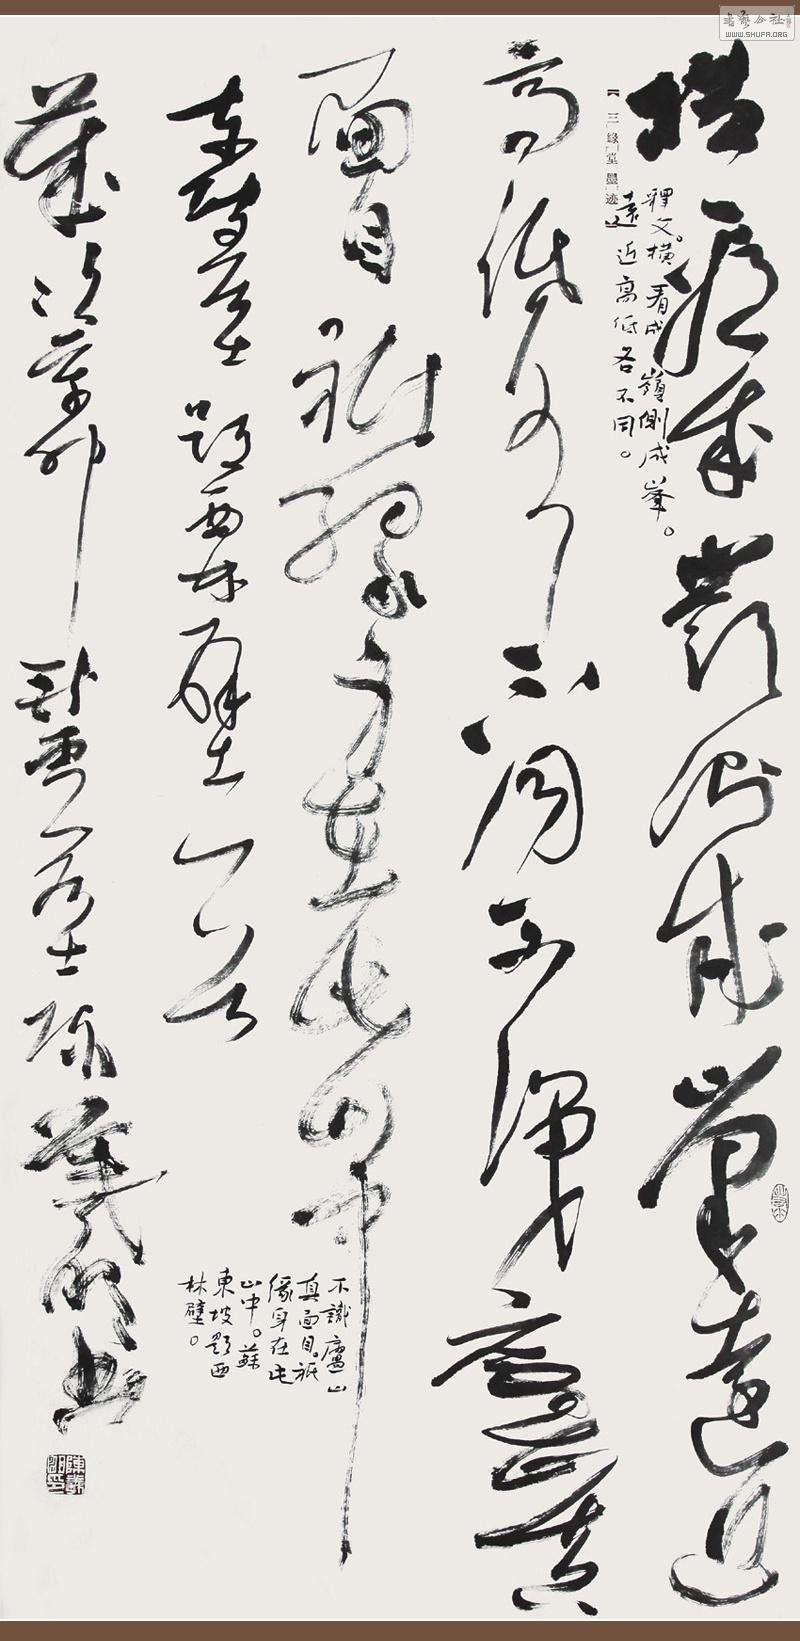 書藝公社
WWW.SHUFA.ORG
横看成嶺側成峯遠近
釋文。横看成嶺側成峯。
遠近高低各不同。
三緣堂墨迹
高低各不同不識廬山真
面目祇緣身在此山中
不識廬山
真面目。祇
緣身在此
山中。蘇
東坡題西
林壁。
東坡居士題西林壁一首
歲次辛卯卧雲居士陳羲明書